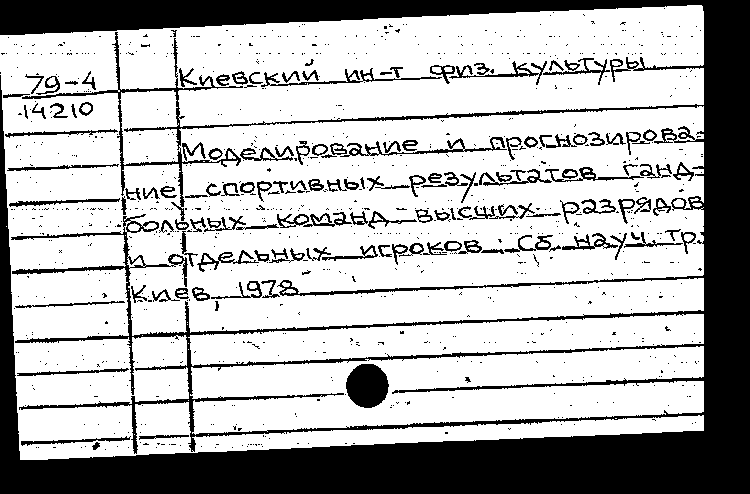 79-4 Киевский ин-т физ. культуры.
14210
Моделирование и прогнозирова-
ние спортивных результатов ганд-
больных команд высших разрядов
и отдельных игроков : Сб. науч. тр.
Киев, 1978